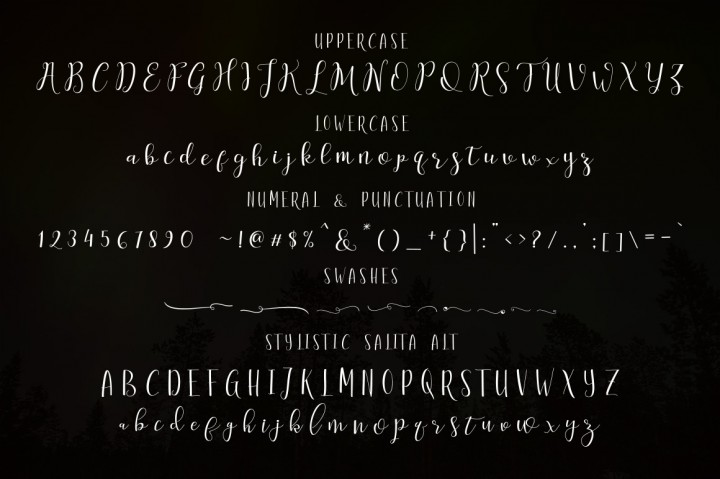 UPPERCASE
A B C D E F G H I J K L M N O P Q R S T U V W X Y Z
LOWERCASE
a b c d e f g h i j k l m n o p q r s t u v w x y z
NUMERAL & PUNCTUATION
1 2 3 4 5 6 7 8 9 0 ~ ! @ # $ % ^ & * ( ) _ + { } | : " < > ? / . , . ' ; [ ] \ = - `
SWASHES
STYLISTIC SALITA ALT
A B C D E F G H I J K L M N O P Q R S T U V W X Y Z
a b c d e f g h i j k l m n o p q r s t u v w x y z